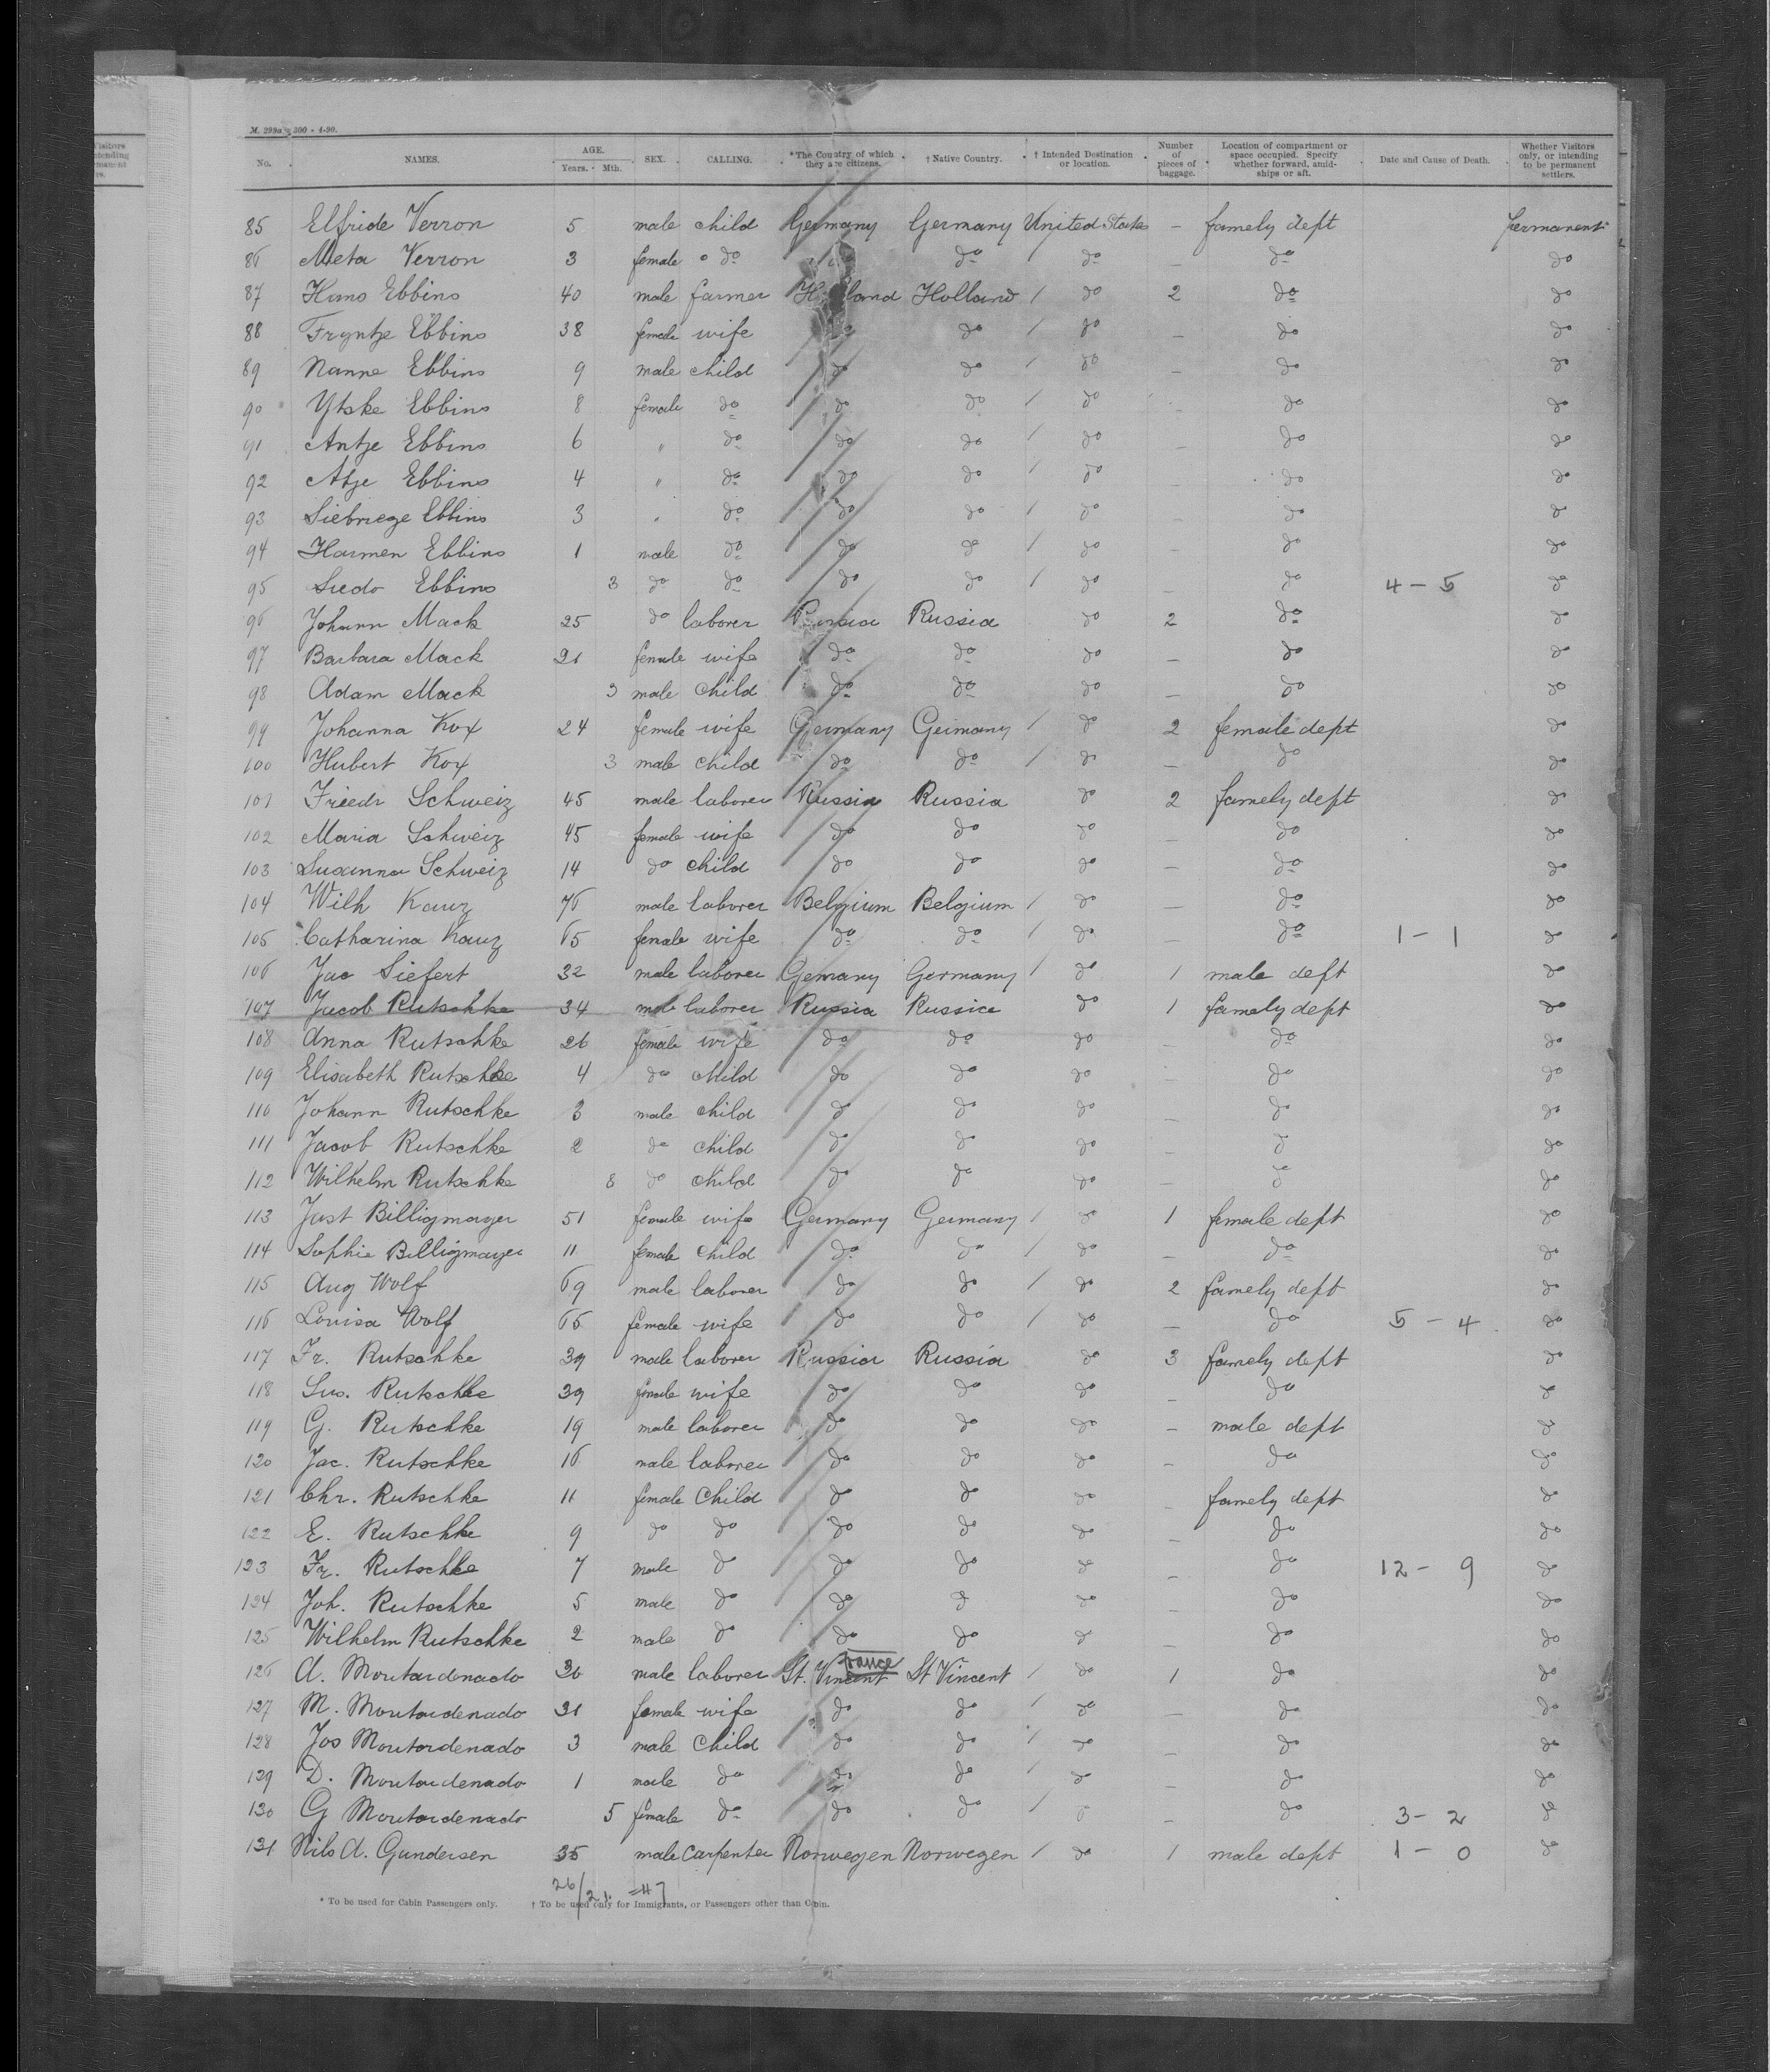 Visitors
ntending
rmanent
rs.
M. 299a 300 - 4-90.
No. NAMES. AGE. Years. Mth. SEX. CALLING. *The Country of which they are citizens. †Native Country. †Intended Destination or location. Number of pieces of baggage. Location of compartment or space occupied. Specify whether forward, amidships or aft. Date and Cause of Death. Whether Visitors only, or intending to be permanent settlers.
85 Elfride Verron 5 male child Germany Germany United States – famely dept permanent
86 Meta Verron 3 female do do do – do do
87 Hans Ebbins 40 male farmer Holland Holland / do 2 do do
88 Tryntje Ebbins 38 female wife do do / do – do do
89 Nanne Ebbins 9 male child do do / do – do do
90 Ytske Ebbins 8 female do do do / do – do do
91 Antje Ebbins 6 " do do do / do – do do
92 Atje Ebbins 4 " do do do / do – do do
93 Siebriege Ebbins 3 " do do do / do – do do
94 Harmen Ebbins 1 male do do do / do – do do
95 Siedo Ebbins 3 do do do do / do – do 4 – 5 do
96 Johann Mack 25 do laborer Russia Russia do 2 do do
97 Barbara Mack 21 female wife do do do – do do
98 Adam Mack 3 male child do do do – do do
99 Johanna Kox 24 female wife Germany Germany / do 2 female dept do
100 Hubert Kox 3 male child do do / do – do do
101 Friedr Schweiz 45 male laborer Russia Russia do 2 famely dept do
102 Maria Schweiz 45 female wife do do do – do do
103 Susanna Schweiz 14 do child do do do – do do
104 Wilh Kauz 76 male laborer Belgium Belgium / do – do do
105 Catharina Kauz 65 female wife do do / do – do 1 – 1 do
106 Jac Siefert 32 male laborer Gemany Germany / do 1 male dept do
107 Jacob Rutschke 34 male laborer Russia Russia do 1 famely dept do
108 Anna Rutschke 26 female wife do do do – do do
109 Elisabeth Rutschke 4 do child do do do – do do
110 Johann Rutschke 3 male child do do do – do do
111 Jacob Rutschke 2 do child do do do – do do
112 Wilhelm Rutschke 8 do child do do do – do do
113 Just Billigmayer 51 female wife Germany Germany / do 1 female dept do
114 Sophie Billigmayer 11 female child do do / do – do do
115 Aug Wolf 69 male laborer do do / do 2 famely dept do
116 Louisa Wolf 65 female wife do do / do – do 5 – 4 do
117 Fr. Rutschke 39 male laborer Russia Russia do 3 famely dept do
118 Sus. Rutschke 39 female wife do do do – do do
119 G. Rutschke 19 male laborer do do do – male dept do
120 Jac. Rutschke 16 male laborer do do do – do do
121 Chr. Rutschke 11 female Child do do do – famely dept do
122 E. Rutschke 9 do do do do do – do do
123 Fr. Rutschke 7 male do do do do – do 12 – 9 do
124 Joh. Rutschke 5 male do do do do – do do
125 Wilhelm Rutschke 2 male do do do do – do do
126 A. Moutardenado 30 male laborer St. Vincent France St Vincent / do 1 do do
127 M. Moutardenado 31 female wife do do / do – do do
128 Jos Moutardenado 3 male Child do do / do – do do
129 D. Moutardenado 1 male do do do / do – do do
130 G Moutardenado 5 female do do do / do – do 3 – 2 do
131 Nils A. Gundersen 35 male Carpenter Norwegen Norwegen / do 1 male dept 1 – 0 do
26/21. = 47
* To be used for Cabin Passengers only. † To be used only for Immigrants, or Passengers other than Cabin.